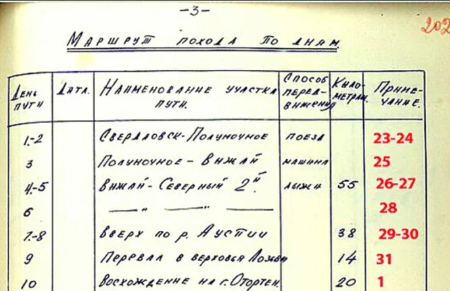 -3-
202
Маршрут похода по дням
День пути Дата. Наименование участка пути. Способ передвижения Километраж. Примечание.
1-2 Свердловск-Полуночное поезд 23-24
3 Полуночное - Вижай машина 25
4-5 Вижай-Северный 2й. лыжи 55 26-27
6 —"— —"— —"— 28
7-8 Вверх по р. Ауспии 38 29-30
9 Перевал в верховья Лозьвы 14 31
10 Восхождение на г. Отортен. 20 1